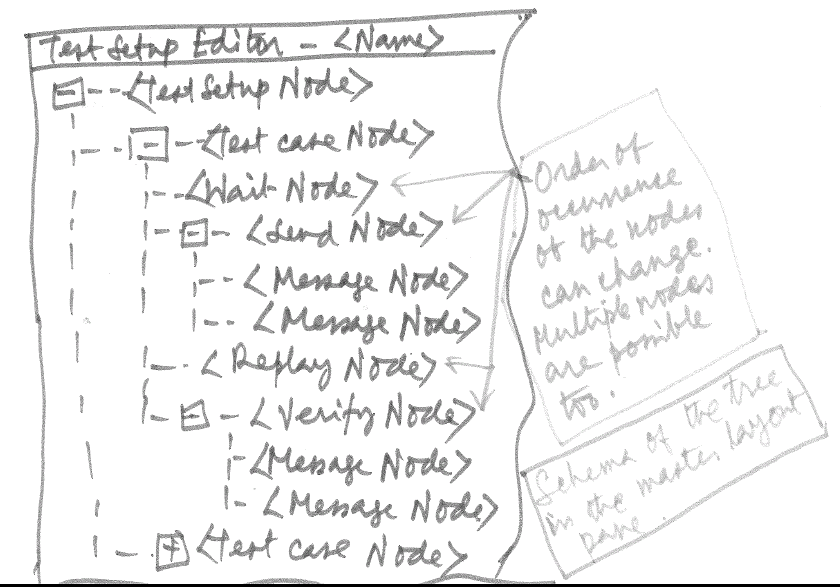 Test Setup Editor - <Name>
<Test Setup Node>
<Test case Node>
<Wait Node>
<Send Node>
<Message Node>
<Message Node>
<Replay Node>
<Verify Node>
<Message Node>
<Message Node>
<Test case Node>
Order of
occurrence
of the nodes
can change.
Multiple nodes
are possible
too.
Schema of the tree
in the master layout
pane.